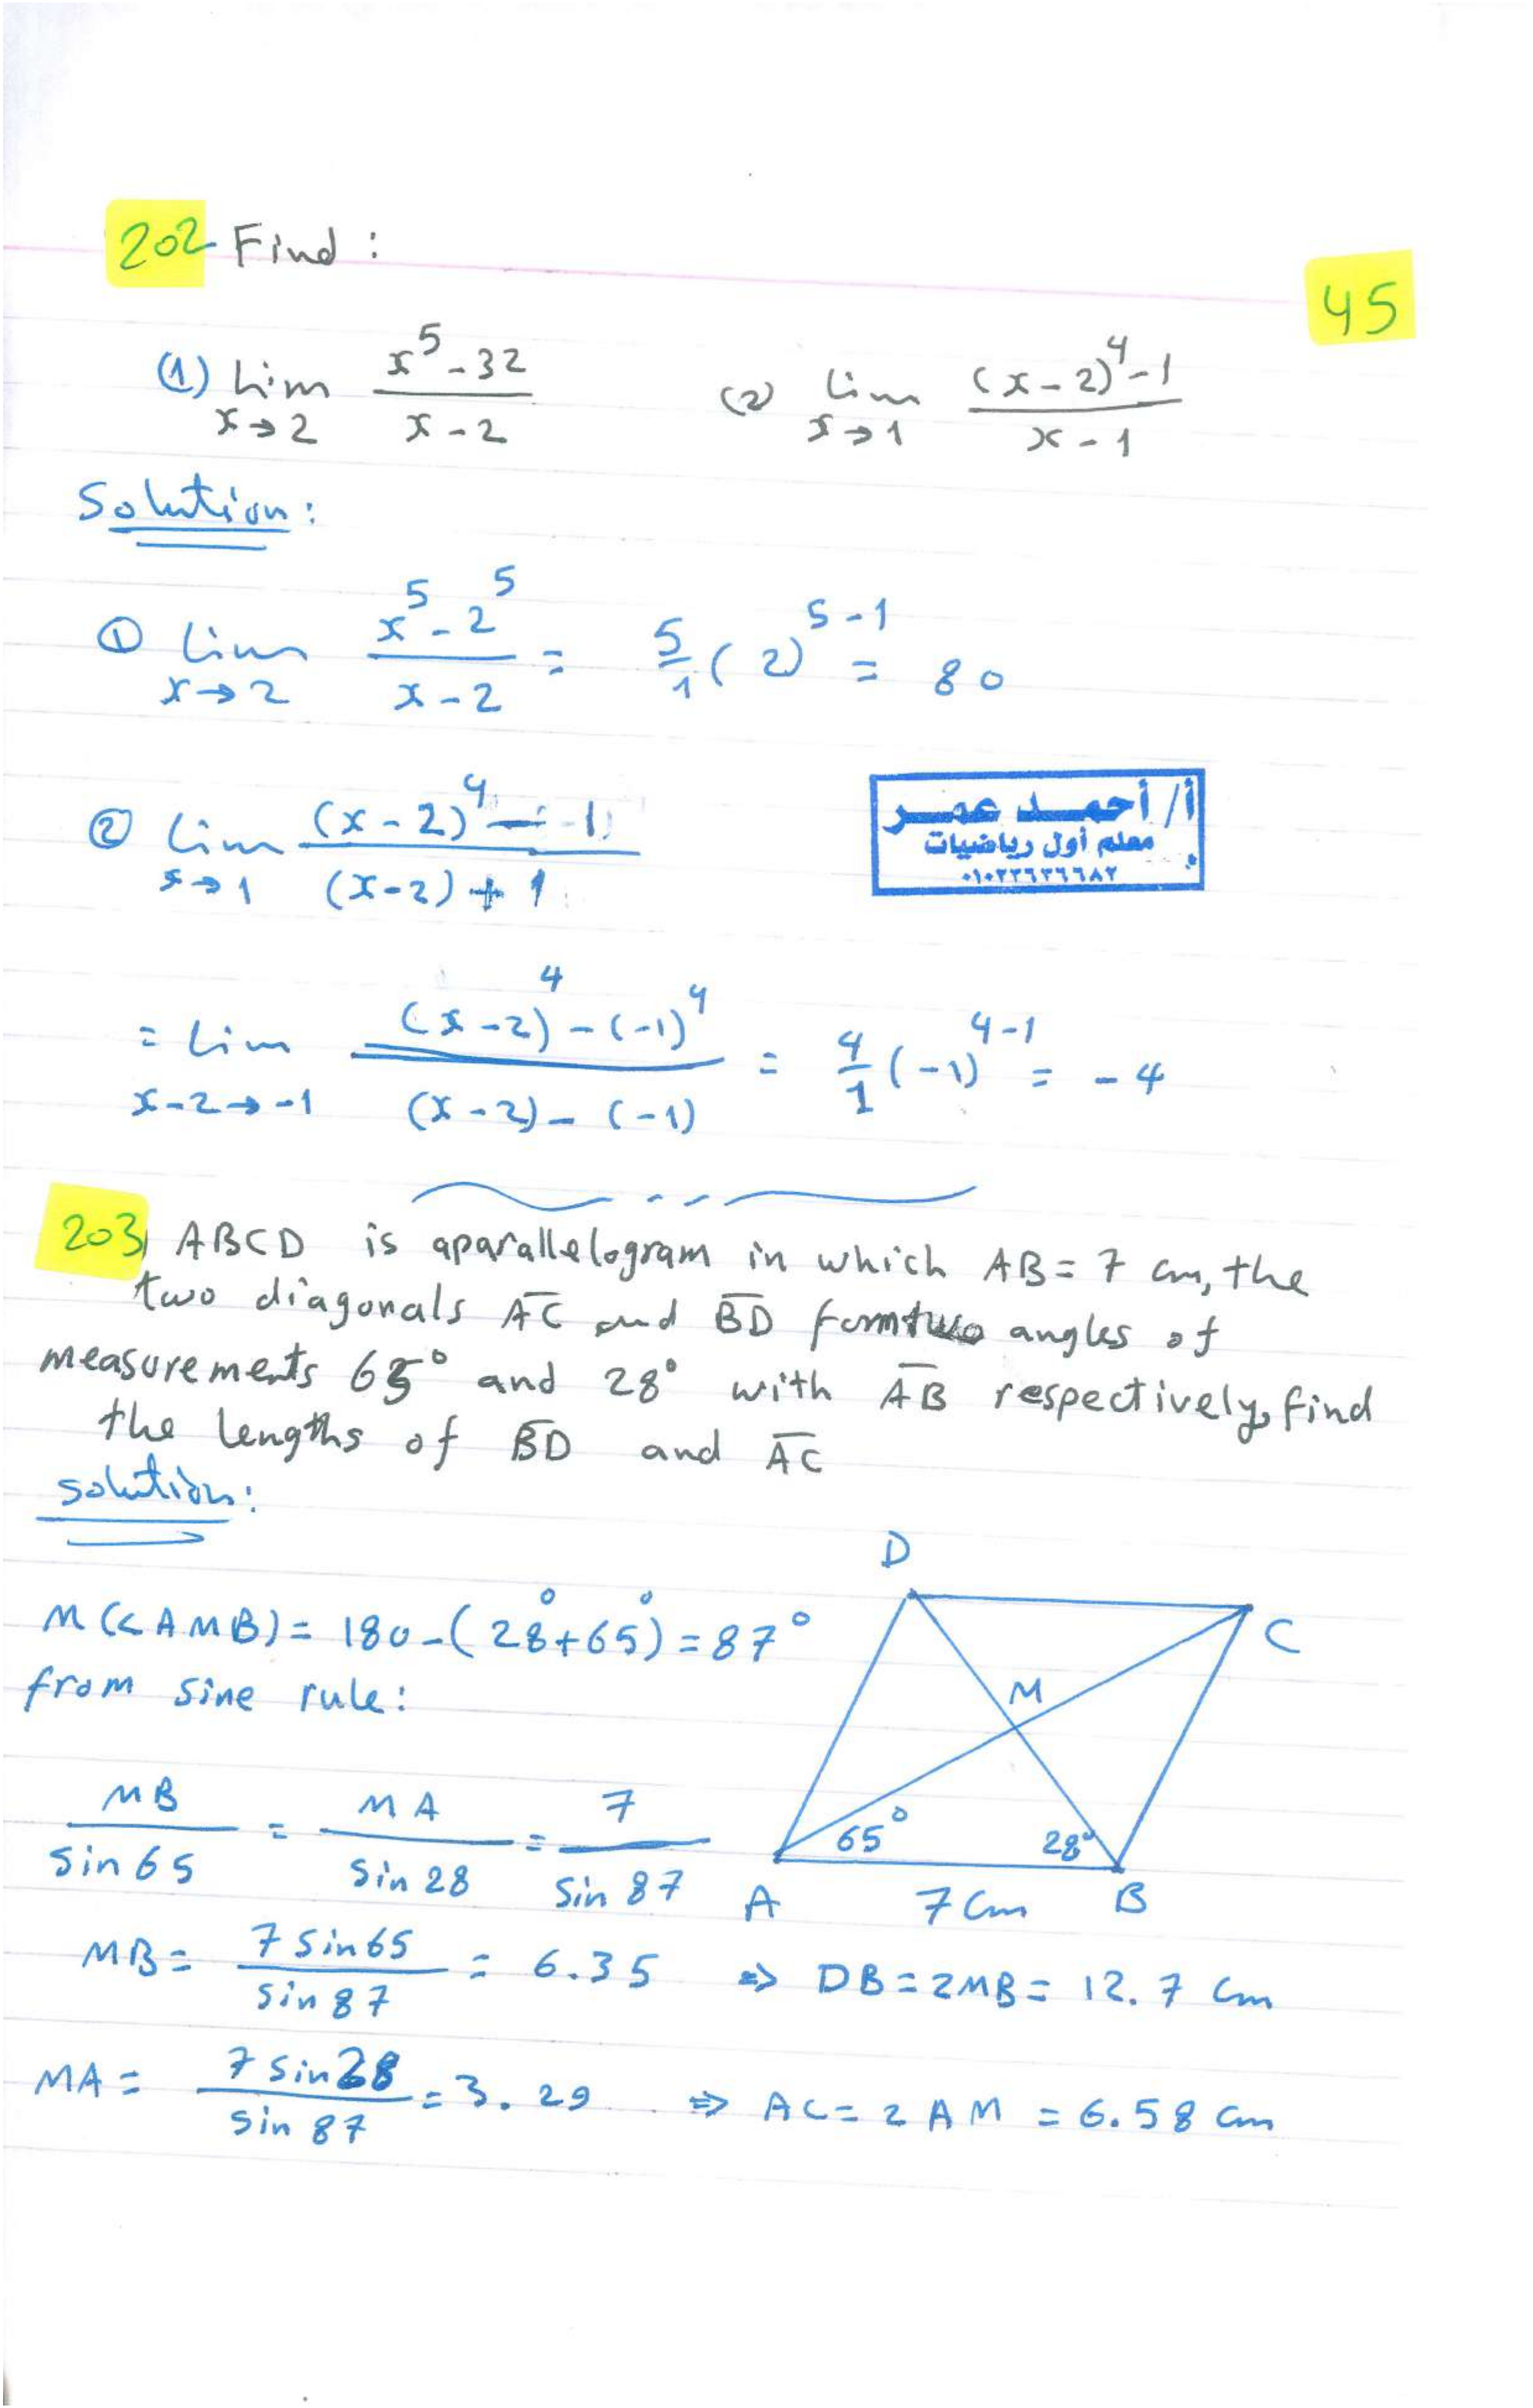 202 Find :
45
(1) lim x→2 (x^5 - 32)/(x - 2) (2) lim x→1 ((x - 2)^4 - 1)/(x - 1)
Solution:
① lim x→2 (x^5 - 2^5)/(x - 2) = 5/1 (2)^(5-1) = 80
② lim x→1 ((x - 2)^4 - 1)/((x - 2) + 1)
أ/ أحمد عمر
معلم أول رياضيات
٠١٠٢٢٦٢٦٦٨٢
= lim x-2→-1 ((x - 2)^4 - (-1)^4)/((x - 2) - (-1)) = 4/1 (-1)^(4-1) = -4
203) ABCD is aparallelogram in which AB = 7 cm, the
two diagonals AC and BD form two angles of
measurements 65° and 28° with AB respectively, find
the lengths of BD and AC
solution:
M(< AMB) = 180 - (28° + 65°) = 87°
from sine rule:
MB/sin 65 = MA/sin 28 = 7/sin 87
D
C
M
65° 28°
A 7 cm B
MB = 7 sin 65/sin 87 = 6.35 ⇒ DB = 2MB = 12.7 cm
MA = 7 sin 28/sin 87 = 3.29 ⇒ AC = 2 AM = 6.58 cm